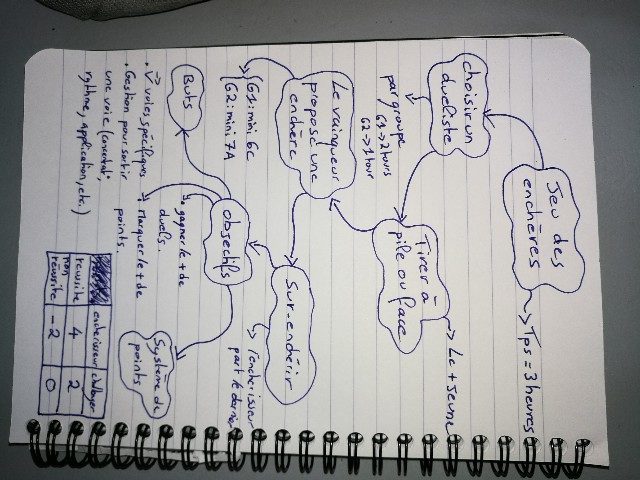 Jeu des
enchères
Tps = 3 heures
choisir un
duelliste
par groupe
G1 → 2 hours
G2 → 1 hour
Tirer à
pile ou face
Le + Jeune
Le vainqueur
propose une
enchère
G1: mini 6c
G2: mini 7A
Sur-enchérir
l'enchérisseur
part le dernier
Objectifs
→ gagner le + de
duels.
→ Marquer le + de
points.
Buts
→ V voies spécifiques
• Gestion pour sortir
une voie (concentrat°,
rythme, application, etc.)
Système de
points
enchérisseur challenger
réussite 4 2
non
réussite -2 0